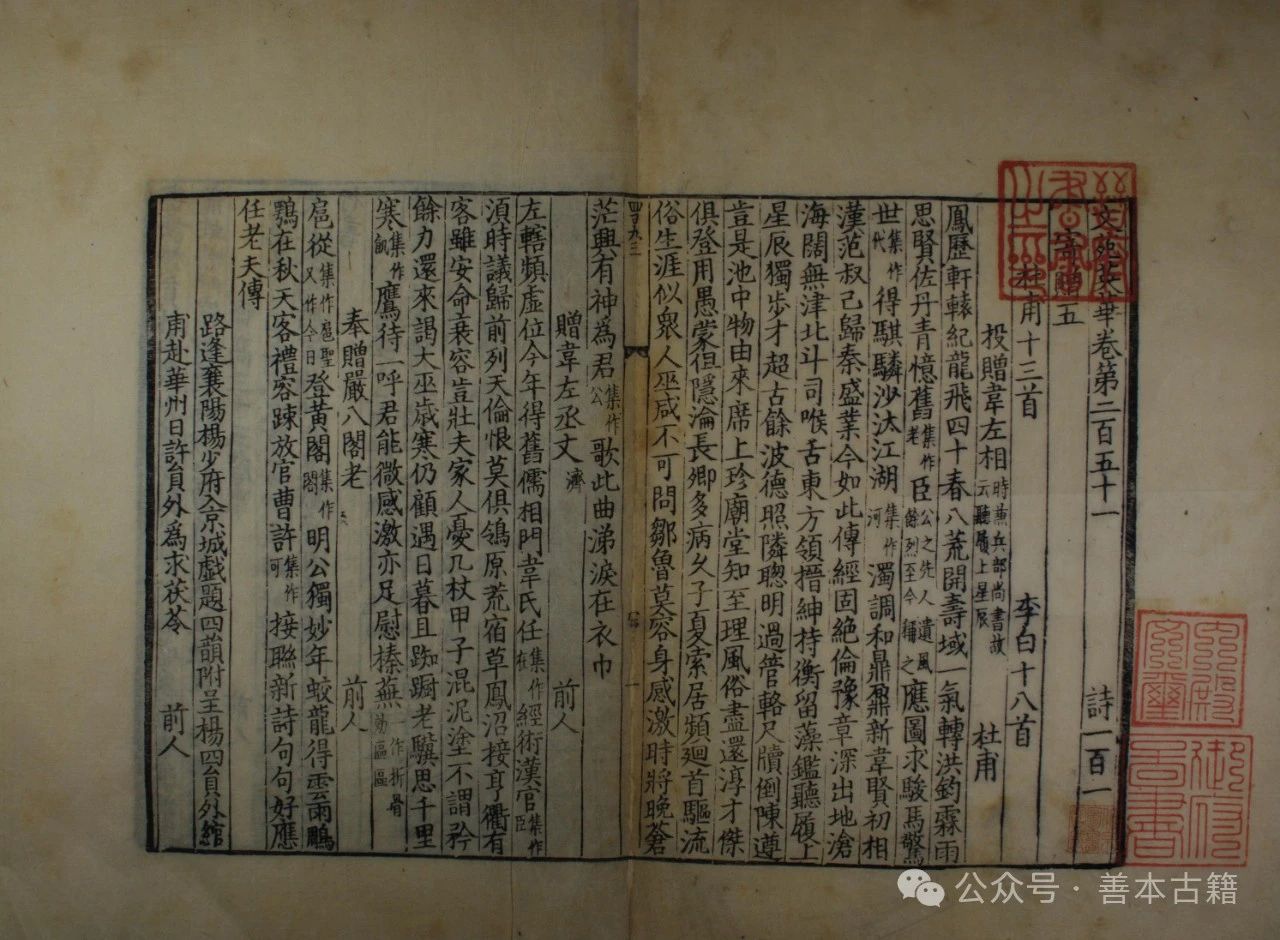 文苑英華卷第二百五十一 詩一百一
寄贈五
杜甫十三首 李白十八首
投贈韋左相時兼兵部尚書故云聽履上星辰 杜甫
鳳歷軒轅紀龍飛四十春八荒開壽域一氣轉洪鈞霖雨
思賢佐丹青憶舊集作老臣公之先人遺風餘烈至今稱之應圖求駿馬驚
世集作代得騏驎沙汰江湖集作河濁調和鼎鼐新韋賢初相
漢范叔已歸秦盛業今如此傳經固絕倫豫章深出地滄
海闊無津北斗司喉舌東方領搢紳持衡留藻鑑聽履上
星辰獨步才超古餘波德照隣聰明過管輅尺牘倒陳遵
豈是池中物由來席上珍廟堂知至理風俗盡還淳才傑
俱登用愚蒙但隱淪長卿多病久子夏索居頻迴首驅流
俗生涯似衆人巫咸不可問鄒魯莫容身感激時將晚蒼
茫興有神為君集作公歌此曲涕淚在衣巾
贈韋左丞丈濟 前人
左轄頻虛位今年得舊儒相門韋氏任集作在經術漢官集作臣
須時議歸前列天倫恨莫俱鴒原荒宿草鳳沼接亨衢有
客雖安命衰容豈壯夫家人憂几杖甲子混泥塗不謂矜
餘力還來謁大巫歲寒仍顧遇日暮且踟躕老驥思千里
寒集作飢鷹待一呼君能微感激亦足慰榛蕪一作折骨効區區
奉贈嚴八閣老 前人
扈從集作扈聖又作今日登黃閣集作閤明公獨妙年蛟龍得雲雨鵰
鶚在秋天客禮容踈放官曹許集作可接聯新詩句句好應
任老夫傳
路逢襄陽楊少府入京城戲題四韻附呈楊四員外綰
甫赴華州日許員外為求茯苓 前人